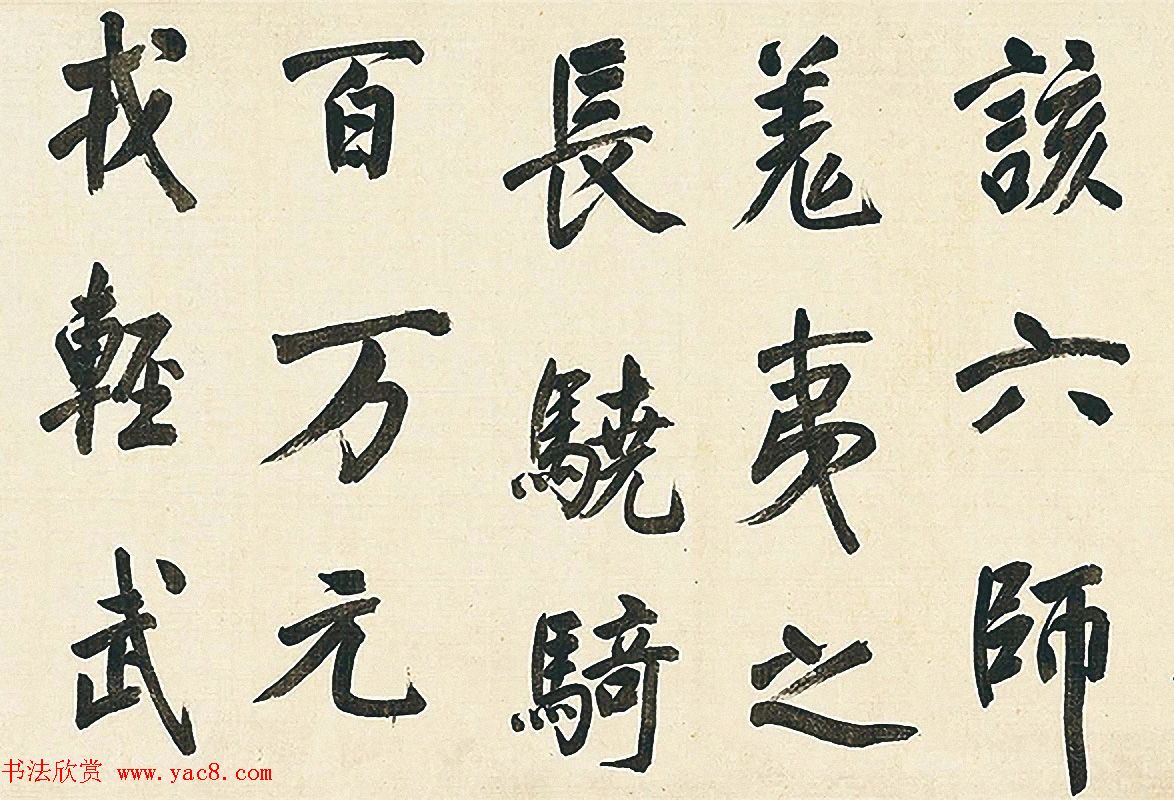 該六師
羌夷之
長驍騎
百万元
戎輕武
书法欣赏 www.yac8.com